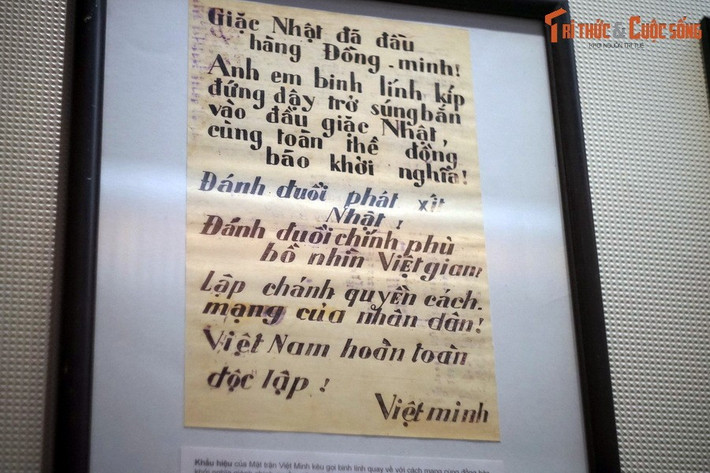 TRI THỨC & CUỘC SỐNG
NƠI NGUỒN TRI TUỆ
Giặc Nhật đã đầu
hàng Đồng-minh!
Anh em binh lính kíp
đứng dậy trở súng bắn
vào đầu giặc Nhật,
cùng toàn thể đồng
bào khởi nghĩa!
Đánh đuổi phát xít
Nhật!
Đánh đuổi chính phủ
bồ nhìn Việt gian!
Lập chánh quyền cách-
mạng của nhân dân!
Việt Nam hoàn toàn
độc lập!
Việt minh
Khẩu hiệu của Mặt trận Việt Minh kêu gọi binh lính quay về với cách mạng cùng đồng bào